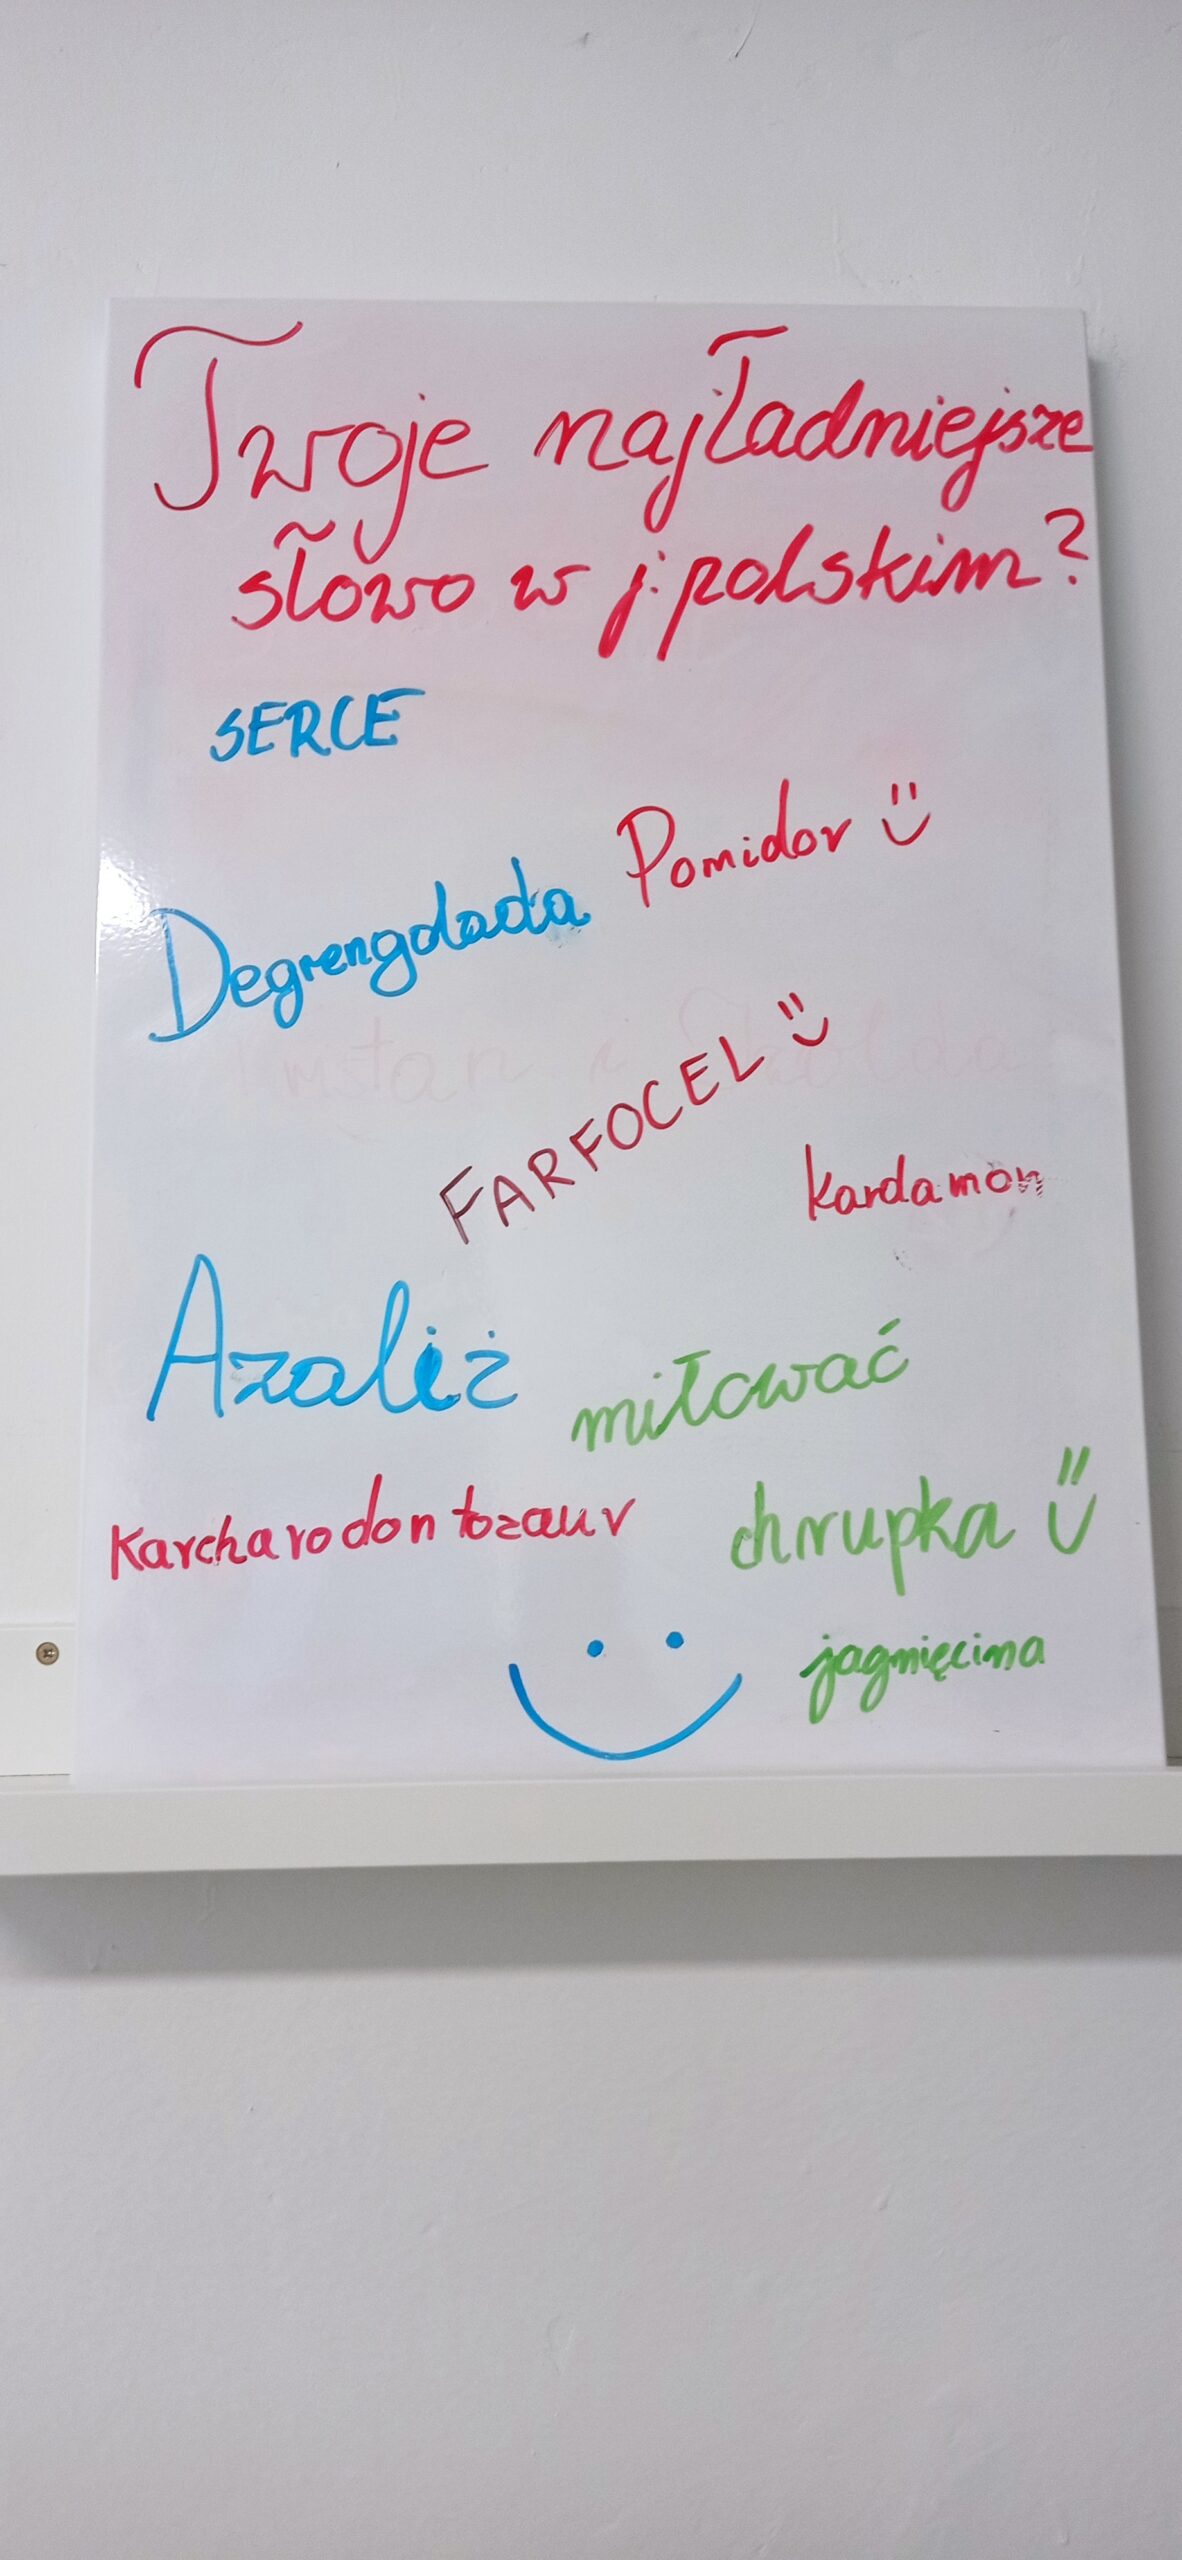 Twoje najładniejsze
słowo w j. polskim?
SERCE
Pomidor
Degrengolada
FARFOCEL
kardamon
Azaliż
miłować
karcharodontozaur
chrupka
jagnięcina